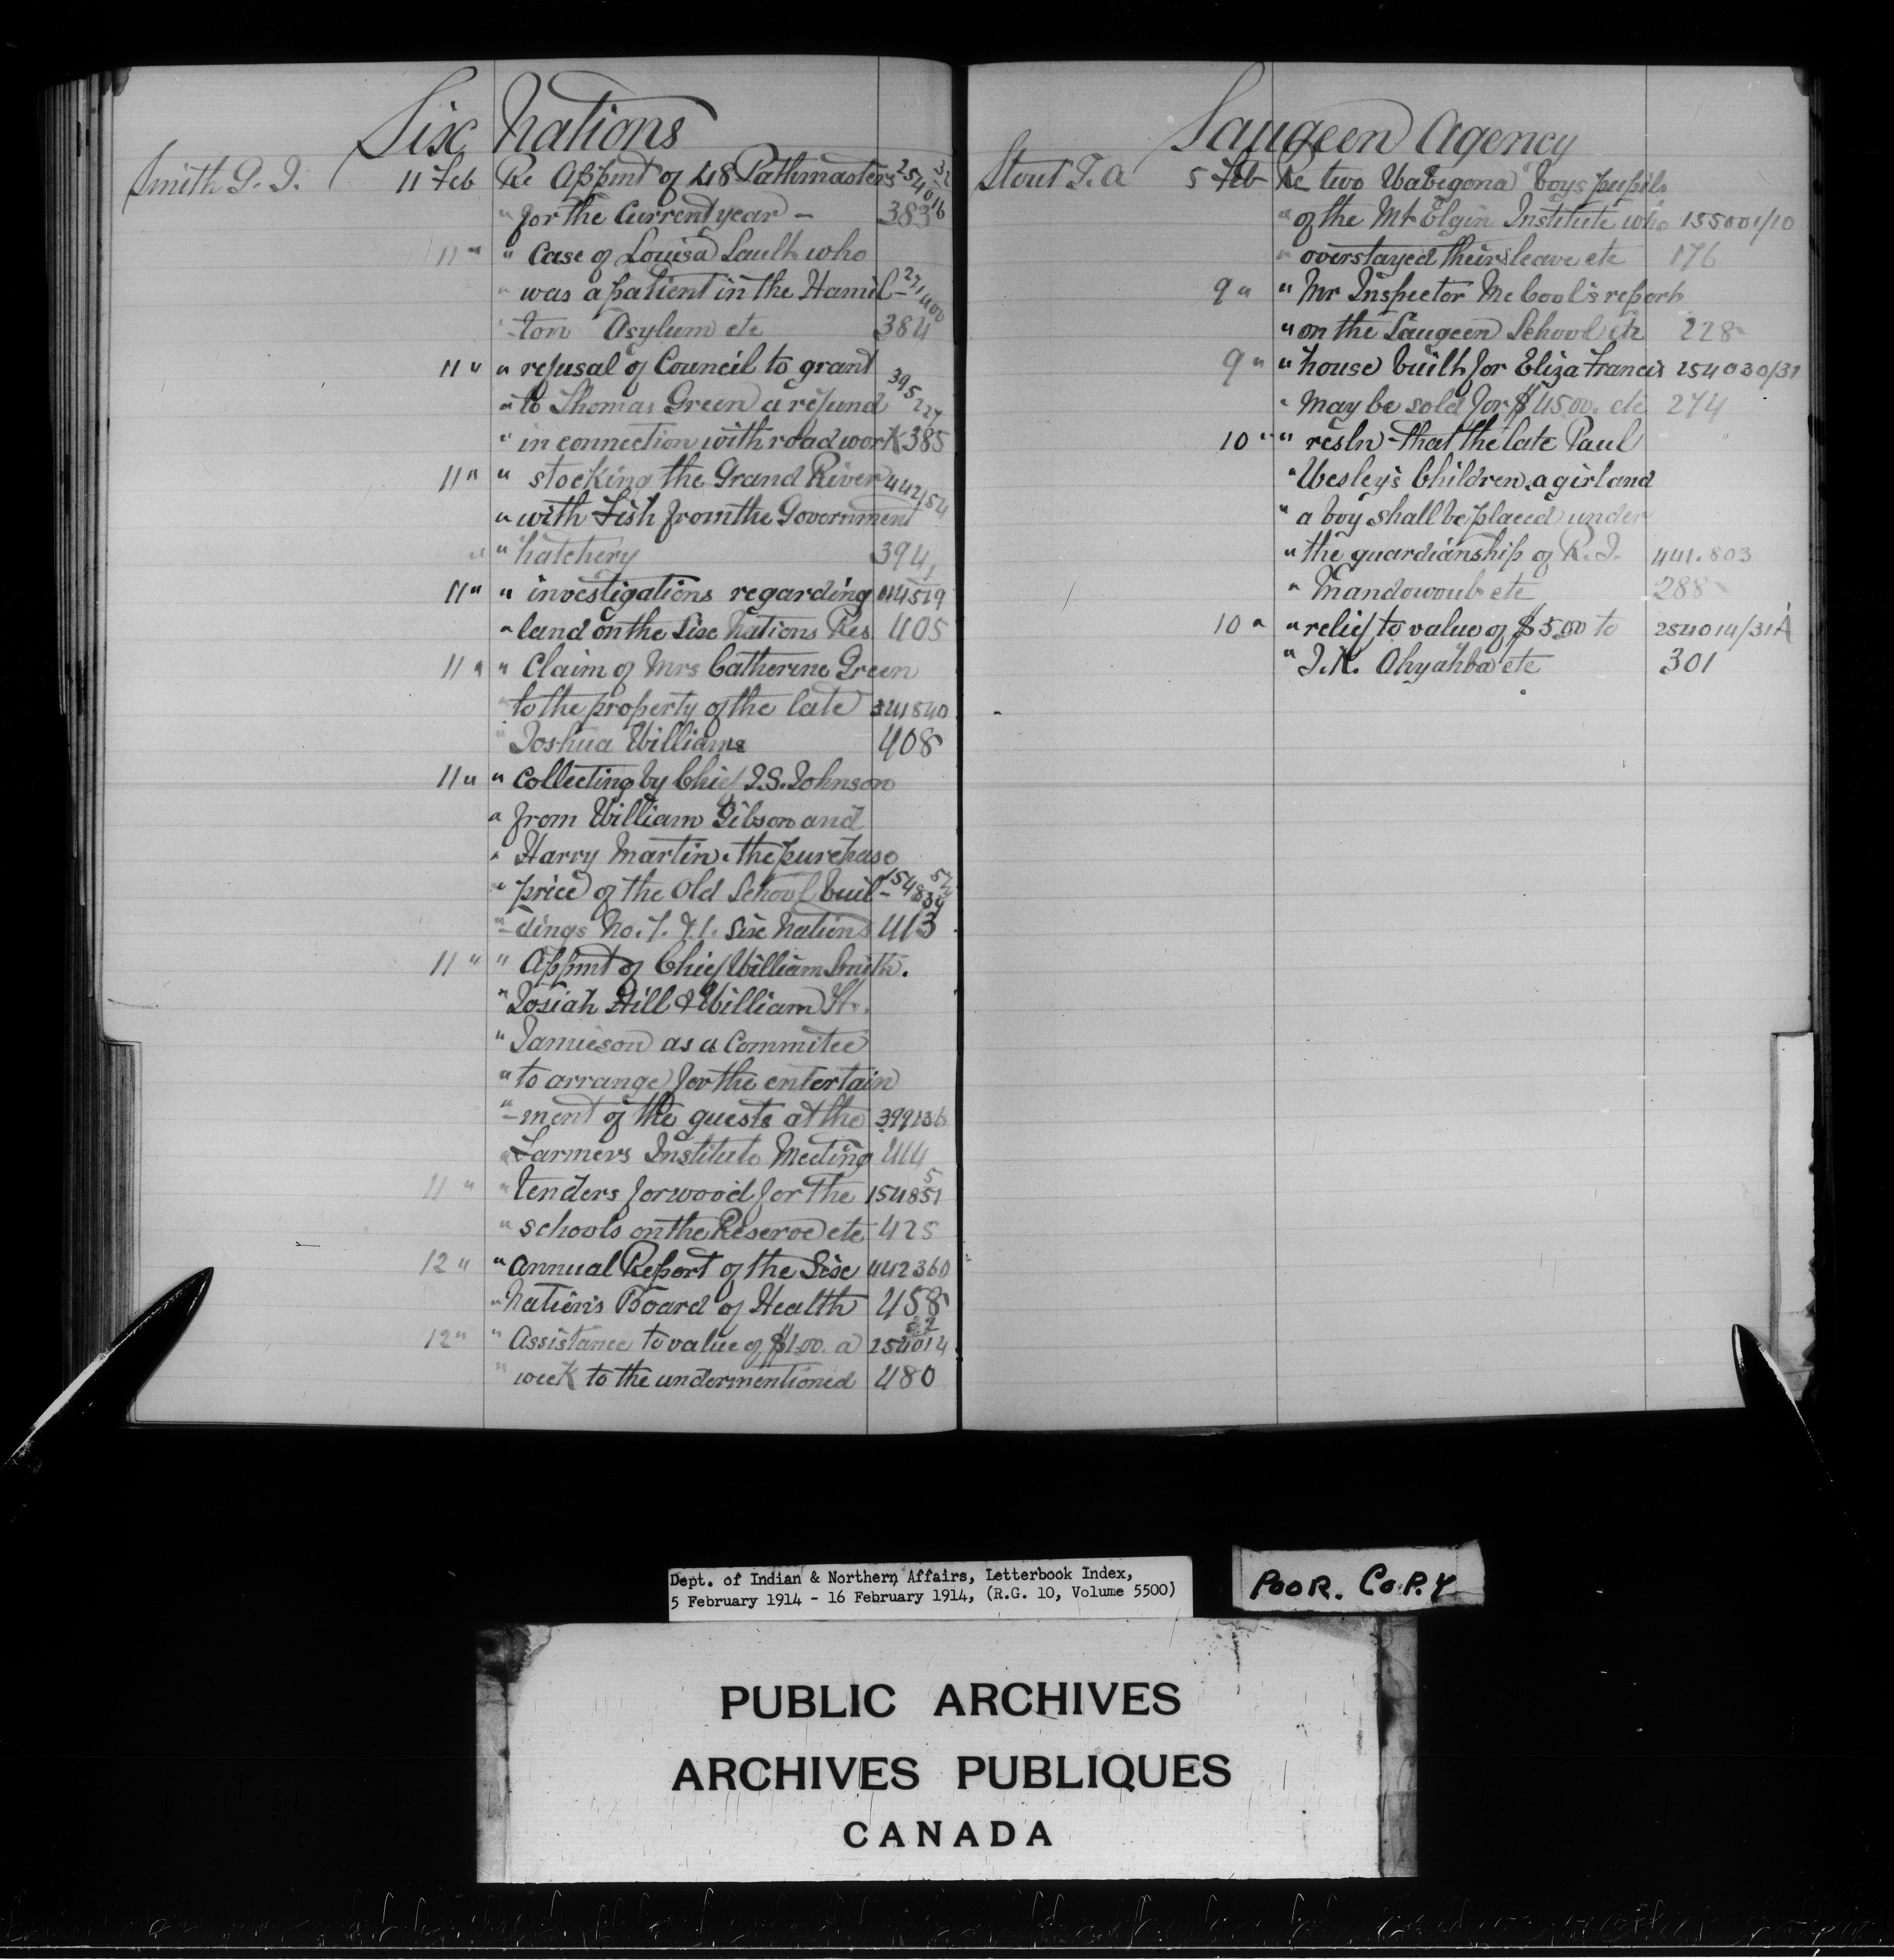 Six Nations
Smith G. J. 11 Feb Re Appmt of 48 Pathmasters 254016 32
" for the Current year — 383
11 " " Case of Louisa Sault who
" was a patient in the Hamil- 271400
" -ton Asylum etc 384
11 " " refusal of Council to grant
" to Thomas Green a refund 395227
" in connection with road work 385
11 " " stocking the Grand River 442154
" with Fish from the Government
" " hatchery 394
11 " " investigations regarding
" land on the Six Nations Res 405
11 " " Claim of Mrs Catherine Green
" to the property of the late 341840
" Joshua Williams 408
11 " " Collecting by Chief J.S. Johnson
" from William Gibson and
" Harry Martin, the purchase
" price of the Old School buil-
" -dings No. 7. & 1. Six Nations 413
11 " " Appmt of Chief William Smith.
" Josiah Hill & William H.
" Jamieson as a Commitee
" to arrange for the entertain
" -ment of the guests at the 399136
" Farmers Institute Meeting 414
11 " " Tenders for wood for the 154851 5
" schools on the Reserve etc 425
12 " " annual Report of the Six 442360
" Nations Board of Health 458
12 " " Assistance to value of $1.00. a 254014 32
" week to the undermentioned 480
Saugeen Agency
Stout T. A 5 Feb Re two Wabegona boys pupils
" of the Mt Elgin Institute who 155001/10
" overstayed their leave etc 176
9 " " Mr Inspector McCool's report
" on the Saugeen School etc 228
9 " " house built for Eliza Francis 254030/31
" May be sold for $45.00. etc 274
10 " " resln that the late Paul
" Wesley's Children, a girl and
" a boy shall be placed under
" the guardianship of R. J. 441.803
" Mandowoub etc 288
10 " " relief to value of $5.00 to 254014/31A
" J.K. Ahyahba etc 301
Dept. of Indian & Northern Affairs, Letterbook Index,
5 February 1914 - 16 February 1914, (R.G. 10, Volume 5500)
POOR. COPY
PUBLIC ARCHIVES
ARCHIVES PUBLIQUES
CANADA